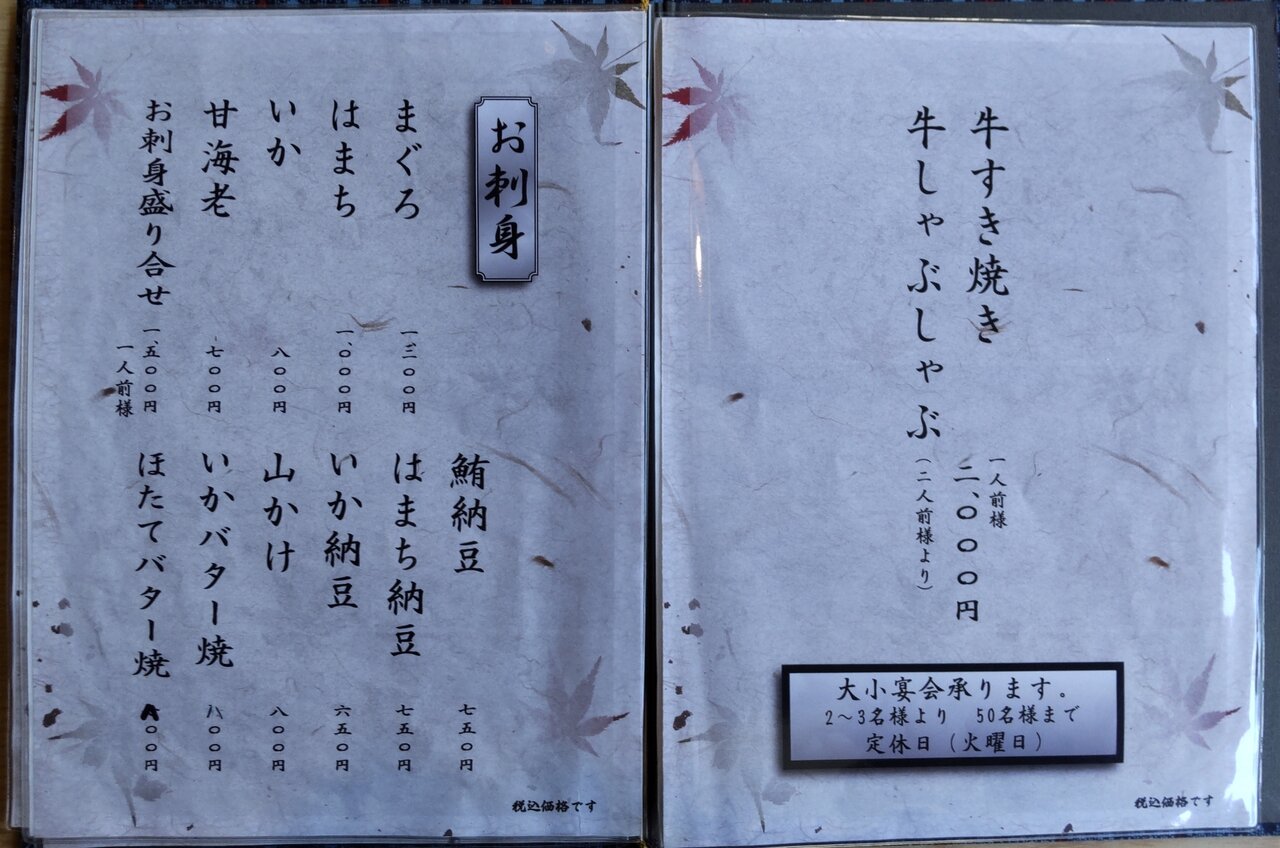 牛すき焼き
牛しゃぶしゃぶ
一人前様
二、〇〇〇円
（二人前様より）
大小宴会承ります。
2～3名様より　50名様まで
定休日（火曜日）
税込価格です
お刺身
まぐろ　一、三〇〇円
はまち　一、〇〇〇円
いか　八〇〇円
甘海老　七〇〇円
お刺身盛り合せ　一、五〇〇円
一人前様
鮪納豆　七五〇円
はまち納豆　七五〇円
いか納豆　六五〇円
山かけ　八〇〇円
いかバター焼　八〇〇円
ほたてバター焼　八〇〇円
税込価格です